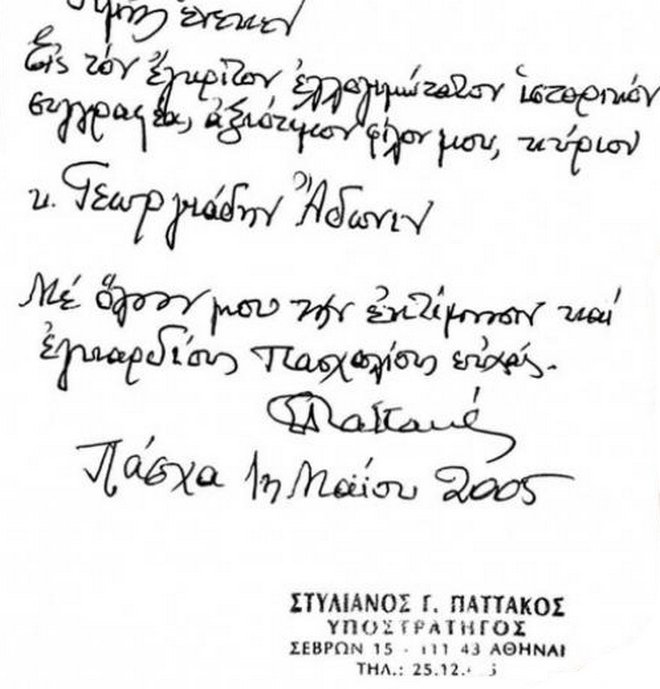 τιμῆς ἕνεκεν
Εἰς τόν ἔγκριτον ἐλλογιμώτατον ἱστορικόν
συγγραφέα, ἀξιότιμον φίλον μου, κύριον
κ. Γεωργιάδην Ἄδωνιν
Μέ ὅλην μου τήν ἐκτίμησιν καί
ἐγκαρδίους πασχαλίους εὐχάς.
Παττακός
Πάσχα 1η Μαΐου 2005
ΣΤΥΛΙΑΝΟΣ Γ. ΠΑΤΤΑΚΟΣ
ΥΠΟΣΤΡΑΤΗΓΟΣ
ΣΕΒΡΩΝ 15 - 111 43 ΑΘΗΝΑΙ
ΤΗΛ.: 25.12.